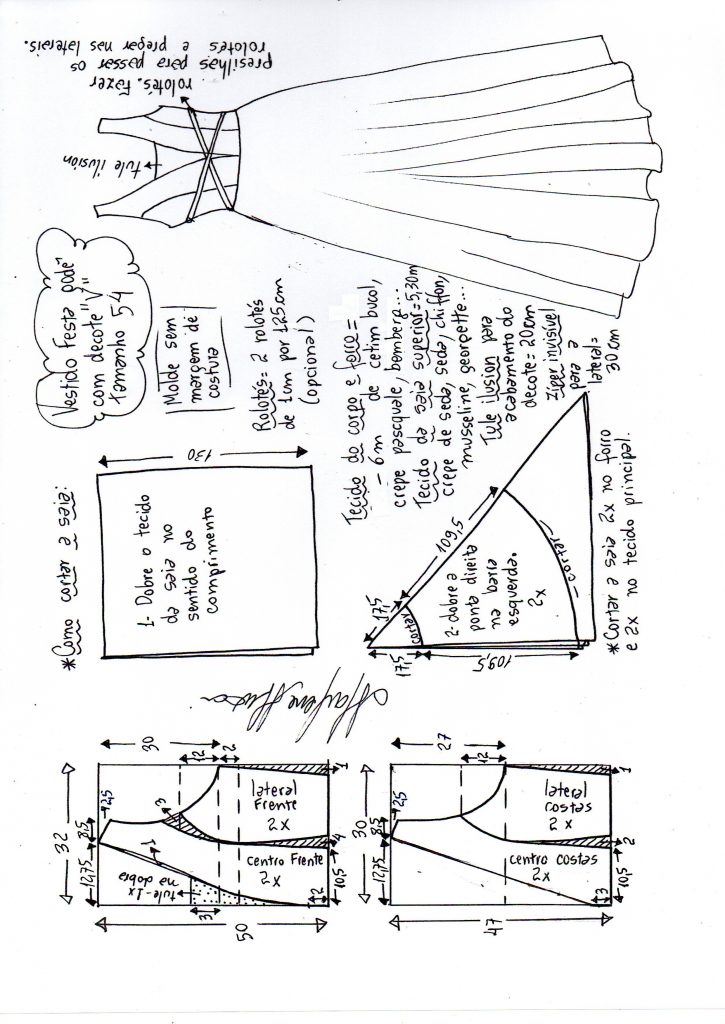 Vestido Festa godê
com decote "V"
tamanho 54
Molde sem
margem de
costura
Rolotês = 2 rolotês
de 1cm por 125cm
(opcional)
tule ilusión
rolotês. Fazer
presilhas para passar os
rolotês e pregar nas laterais.
Tecido do corpo e forro =
- 6m de cetim bucol,
crepe pasquale, bomberg...
Tecido da saia superior = 5,30m
crepe de seda, seda, chiffon,
musseline, georgette...
Tule ilusion para
acabamento do
decote = 20cm
Ziper invisível
para a
lateral =
30cm
*Como cortar a saia:
130
1- Dobre o tecido
da saia no
sentido do
comprimento
17,5
109,5
cortar
2- dobre a
ponta direita
na barra
esquerda.
2x
cortar
17,5
109,5
*Cortar a saia 2x no forro
e 2x no tecido principal.
32
12,75
8,5
2,5
30
12
2
3
1
tule-1x
na dobra
3
lateral
Frente
2x
centro Frente
2x
50
2
10,5
4
1
30
12,75
8,5
2,5
27
12
lateral
costas
2x
centro costas
2x
47
3
10,5
2
1